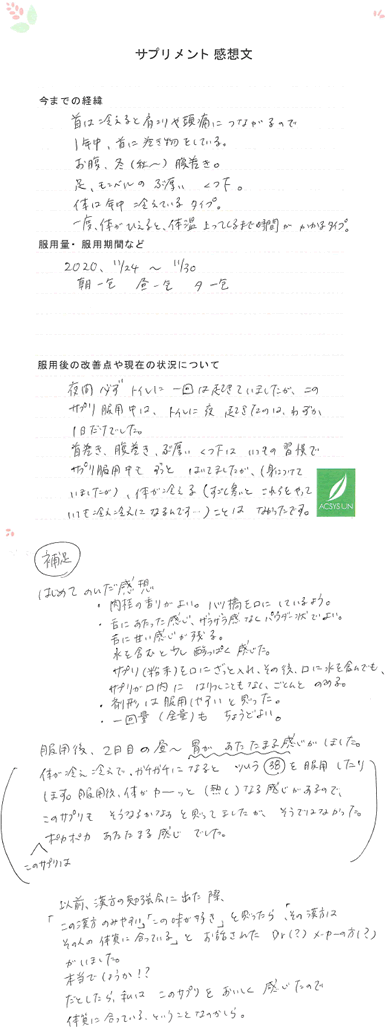 サプリメント 感想文
今までの経緯
首は冷えると肩こりや頭痛につながるので
1年中、首に巻き物をしている。
お腹、冬(秋〜)腹巻き。
足、モンベルの ぶ厚い くつ下。
体は年中 冷えている タイプ。
一度、体がひえると、体温 上ってくるまで時間が かかるタイプ。
服用量・服用期間など
2020、11/24 〜 11/30
朝一包 昼一包 夕一包
服用後の改善点や現在の状況について
夜間 必ず トイレに 一回は起きていましたが、この
サプリ服用中は、トイレに夜 起きたのは、わずか
1日だけでした。
首巻き、腹巻き、ぶ厚い くつ下は いつもの習慣で
サプリ服用中も ずっと はいてましたが、(身につけて
いましたが)、体が冷える (すごく寒いと これらをやって
いても冷え冷えになるんです…) ことは なかったです。
ACSYS UN
補足
はじめて のんだ感想
・肉桂の香りがよい。八ツ橋を口に しているよう。
・舌にあたった感じ、ザラザラ感なくパウダー状でよい。
舌に甘い感じが残る。
水を含むと少し酸っぱく感じた。
サプリ(粉末)を口にざっと入れ、その後、口に水を含んでも、
サプリが口内に はりつくこともなく、ごくんと のめる。
・剤形は服用しやすいと思った。
・一回量(全量)も ちょうどよい。
服用後、2日目の昼〜 胃が あたたまる感じがしました。
体が冷え冷えで、ガチガチになると ツムラ㊳を服用したり
します。服用後、体がカーッと(熱く)なる感じがあるので、
このサプリも そうなるかなぁと思ってましたが、そうではなかった。
ポカポカ あたたまる感じ でした。
このサプリは
以前、漢方の勉強会に出た際、
「この漢方のみやすい」「この味が好き」と思ったら、「その漢方は
その人の 体質に合っている」と お話された Dr(?) メーカーの方(?)
がいました。
本当でしょうか!?
だとしたら、私は このサプリを おいしく 感じたので
体質に合っている、ということなのかしら。